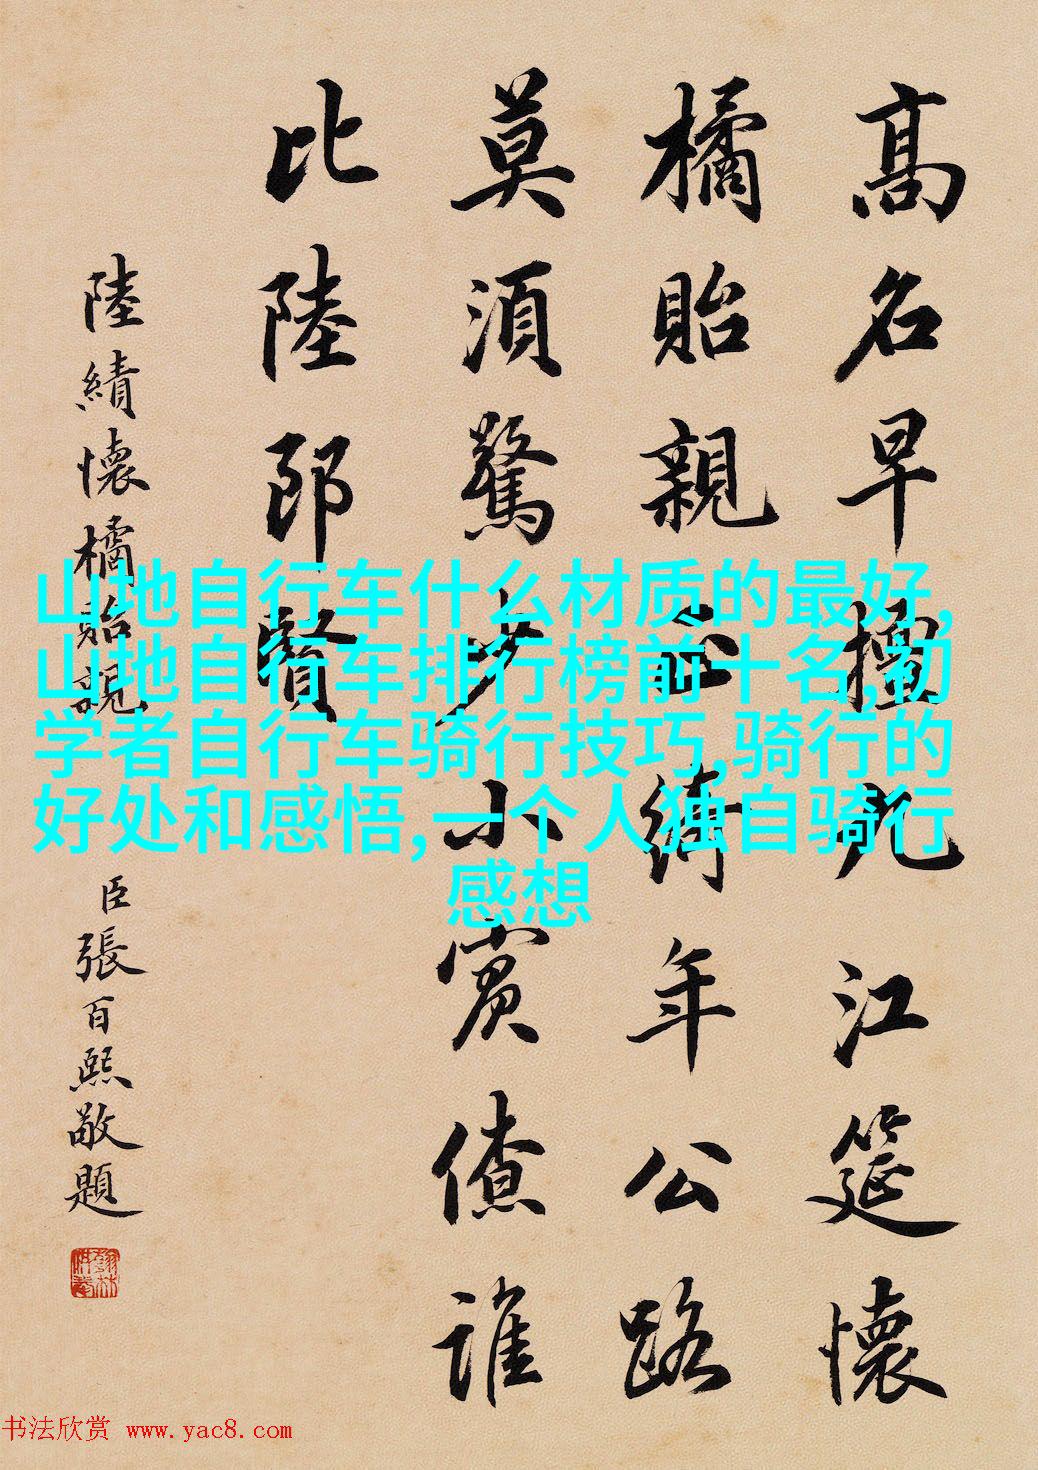 高名早擅九江筵懷
橘貽親正綺年公路
莫須驚少小賓僚誰
比陸郎賢
陸績懷橘貽親
臣張百熙敬題
山地自行车什么材质的最好,
山地自行车排行榜前十名,初
学者自行车骑行技巧,骑行的
好处和感悟,一个人独自骑行
感想
书法欣赏 www.yac8.com